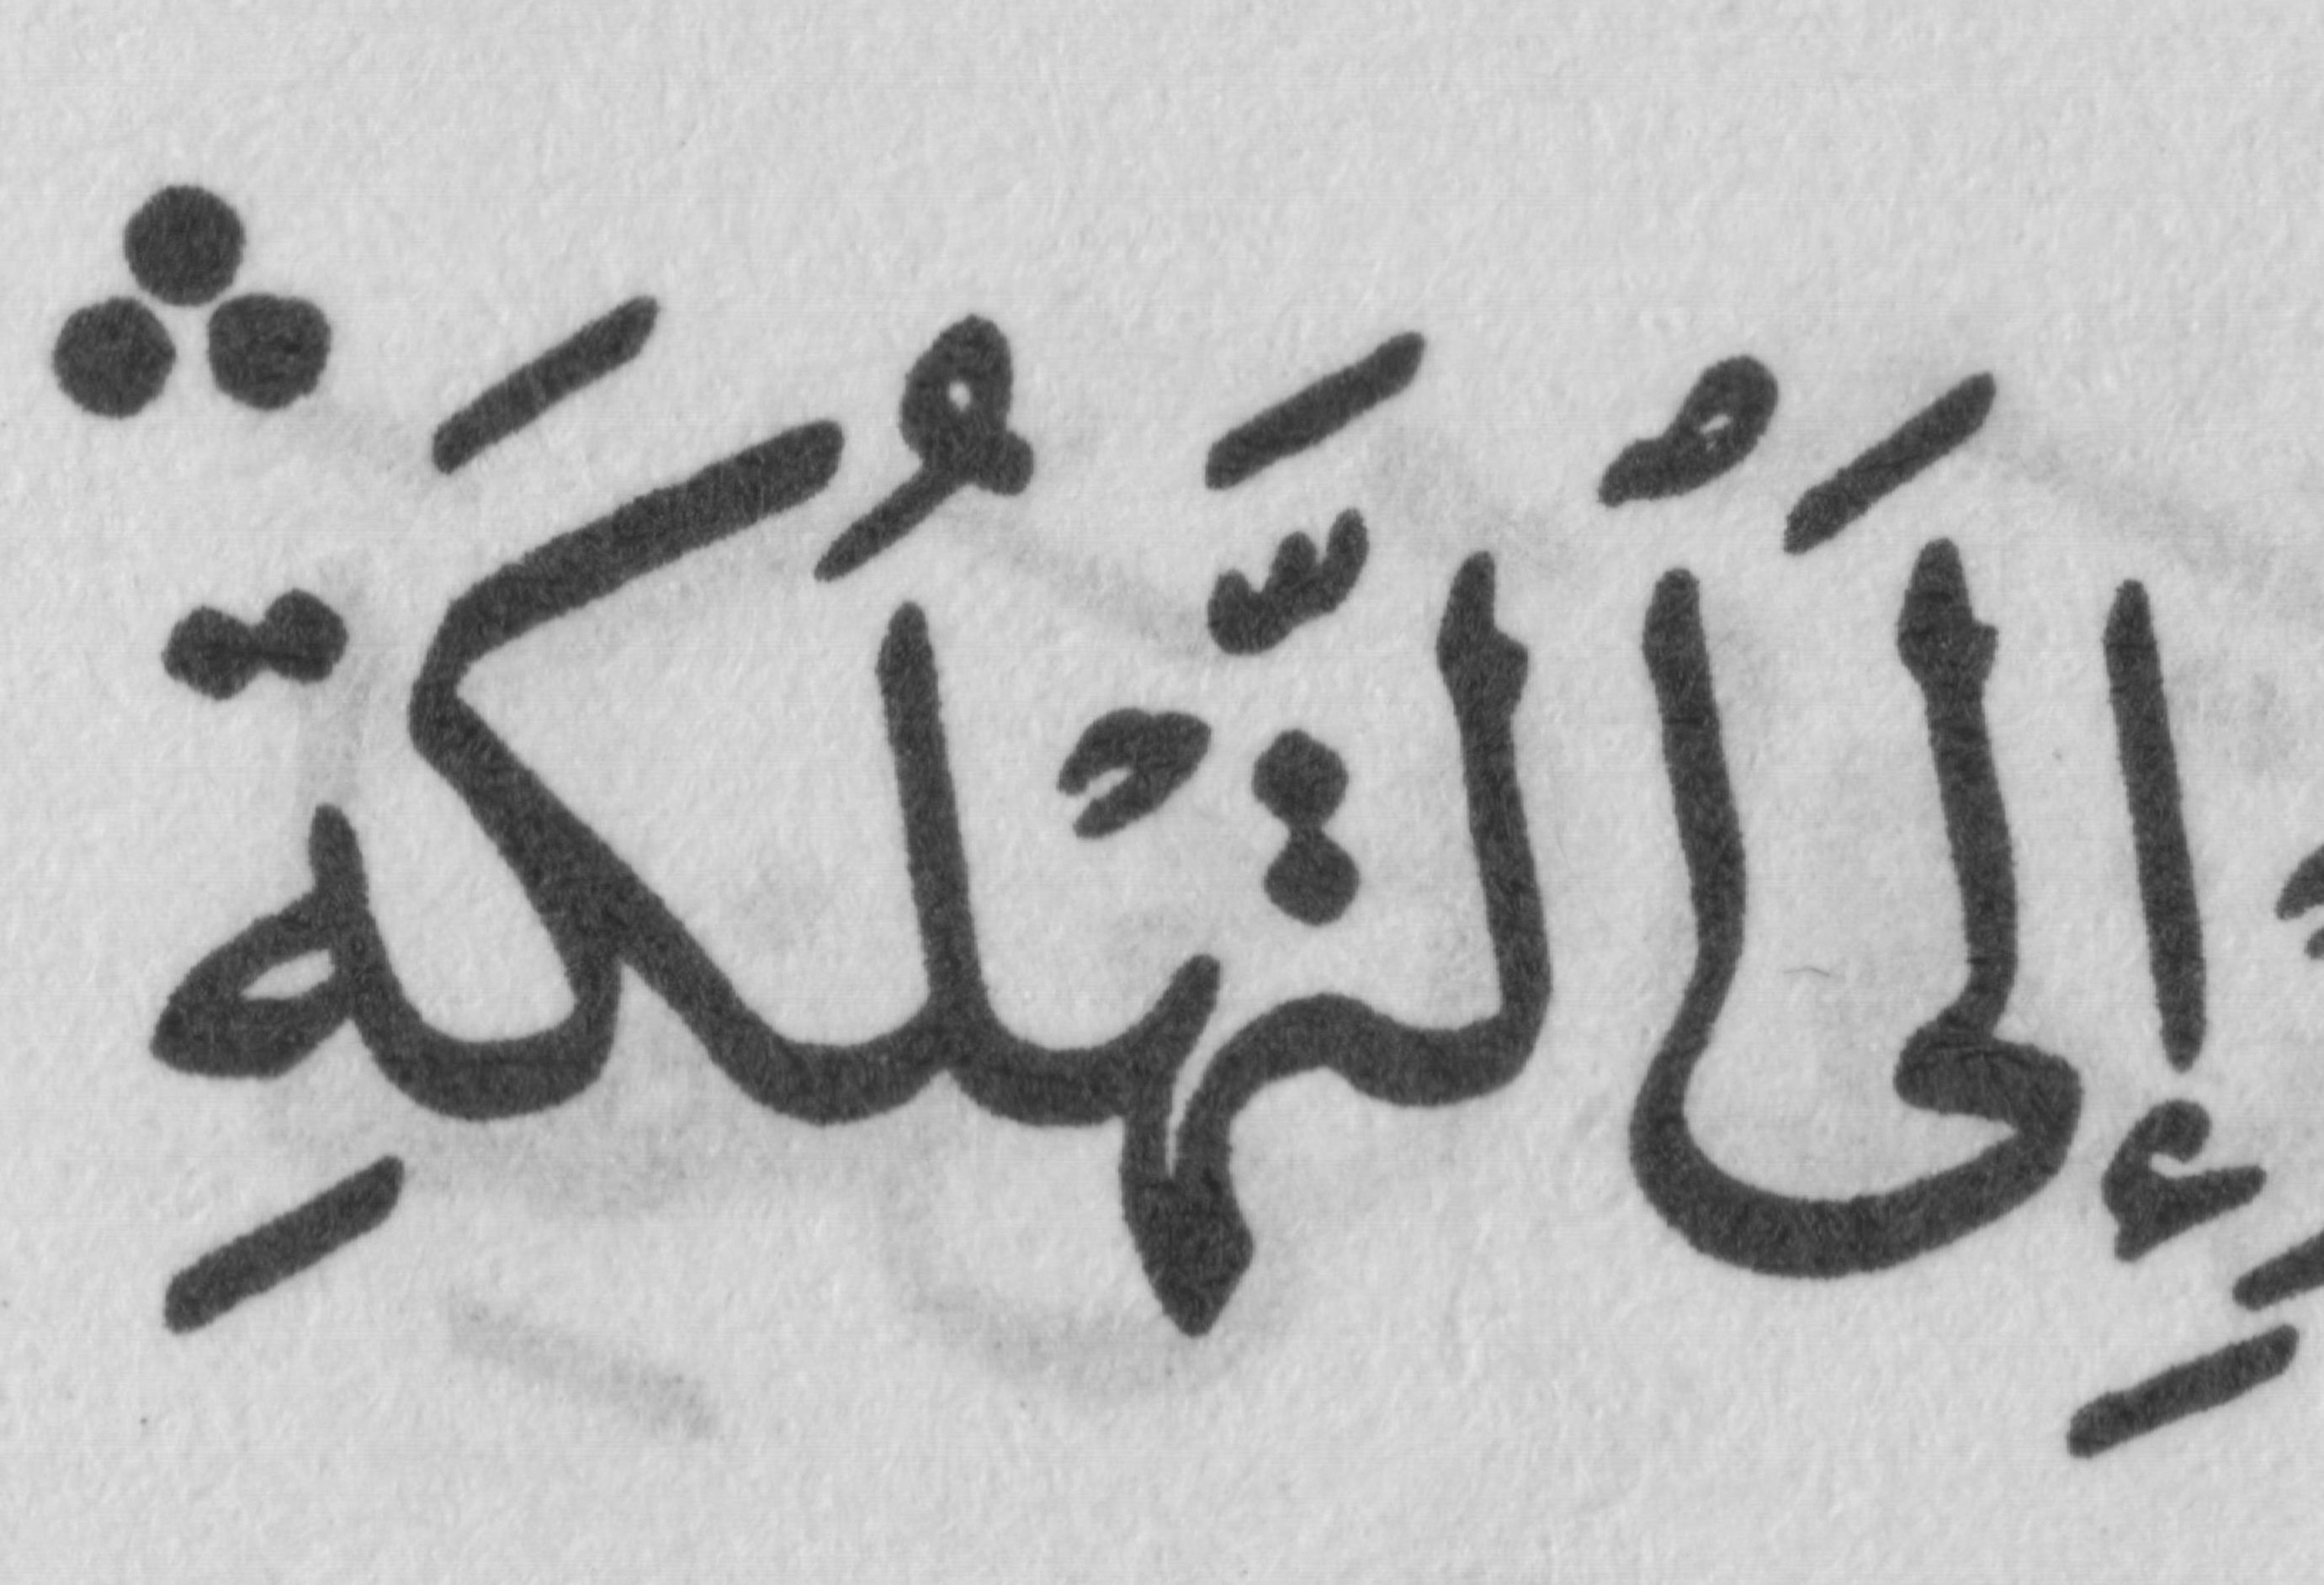 إِلَى ٱلتَّهۡلُكَةِ ۛ